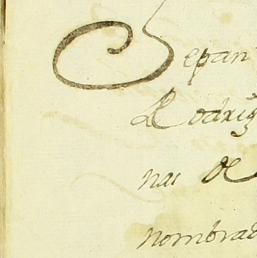 Sepan
Rodrig
nas de
nombrad